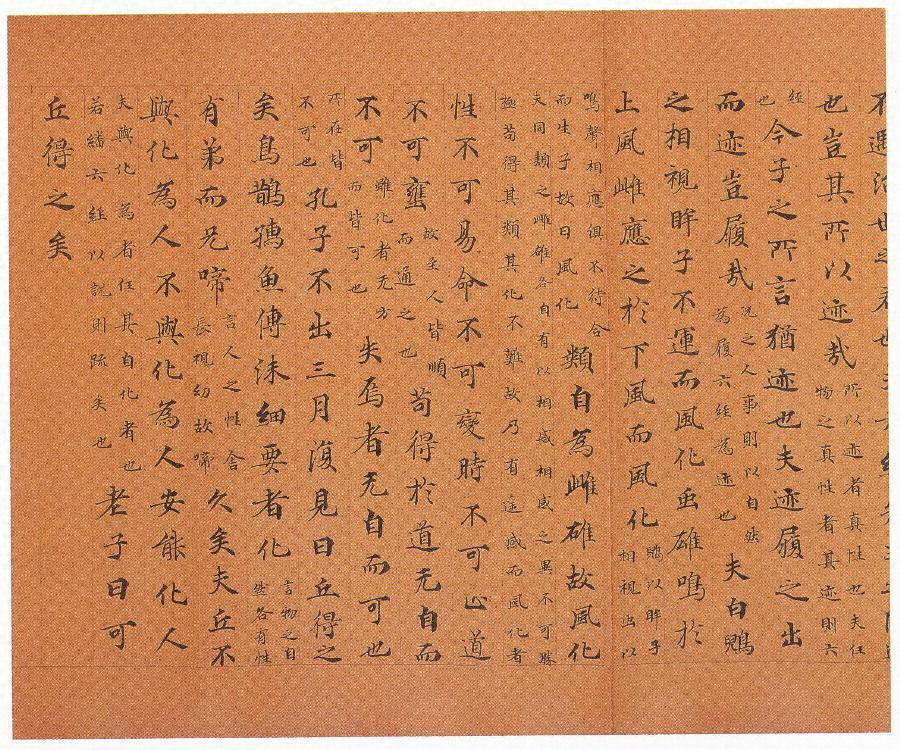 不遇治世之君也夫六
也豈其所以迹哉所以迹者真性也夫任物之真性者其迹則六
經也今子之所言猶迹也夫迹履之出
而迹豈履哉況之人事則以自然為履六經為迹也夫白鶂
之相視眸子不運而風化虫雄鳴於
上風雌應之於下風而風化鶂以眸子相視虫以
鳴聲相應俱不待合而生子故曰風化類自為雌雄故風化
夫同類之雌雄各自有以相感相感之異不可勝極苟得其類其化不難故乃有遥感而風化者
性不可易命不可變時不可止道
不可壅故至人皆順而通之也苟得於道无自而
不可雖化者无方而皆可也失焉者无自而可也
所在皆不可也孔子不出三月復見曰丘得之
矣烏鵲孺魚傅沫細要者化言物之自然各有性
有弟而兄啼言人之性舍長視幼故啼久矣夫丘不
與化為人不與化為人安能化人
夫與化為者任其自化者也若繙六經以説則疏矣也老子曰可
丘得之矣